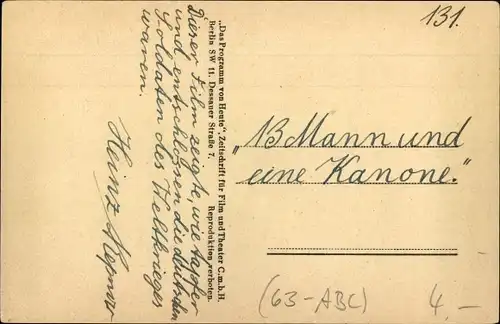 131.
Dieser Film zeigte, wie tapfer
und entschlossen die deutschen
Soldaten des Weltkrieges
waren.
Heinz
„Das Programm von Heute“, Zeitschrift für Film und Theater G.m.b.H.
Berlin SW 11, Dessauer Straße 7. Reproduktion verboten.
„13 Mann und
eine Kanone.“
(63-ABC)
4.–